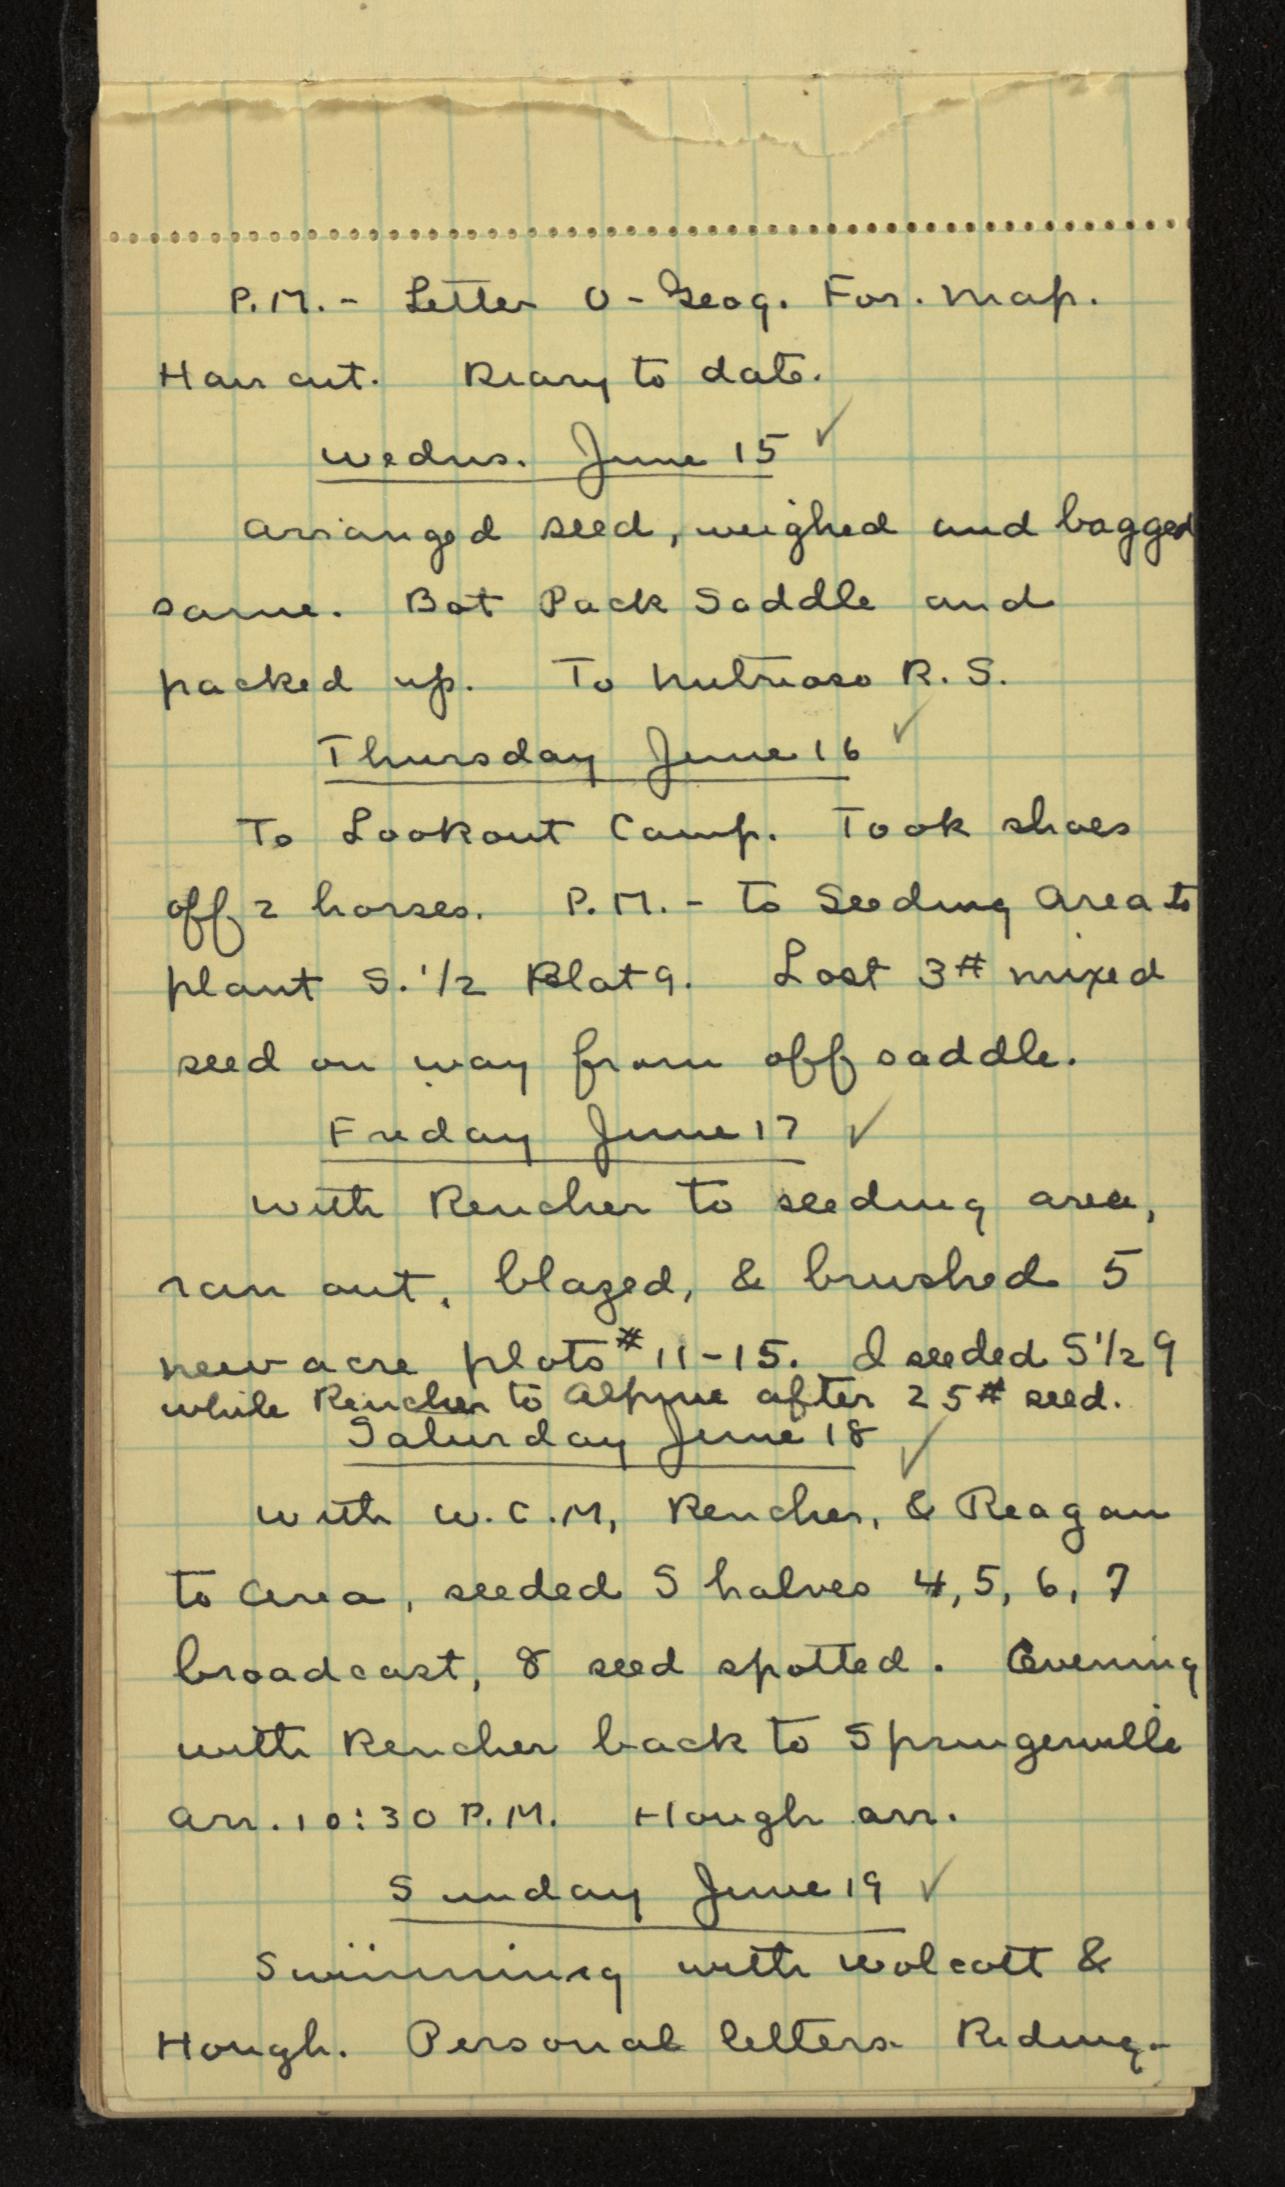 P.M. - Letter O - Geog. For. Map.
Hair cut. Diary to date.
Wednes. June 15 ✓
Arranged seed, weighed and bagged
same. Bot Pack Saddle and
packed up. To Nutrioso R.S.
Thursday June 16 ✓
To Lookout Camp. Took shoes
off 2 horses. P.M. - to Seeding Area to
plant S. 1/2 Plat 9. Lost 3# mixed
seed on way from off saddle.
Friday June 17 ✓
With Rencher to seeding area,
ran out, blazed, & brushed 5
new acre plots # 11-15. I seeded S 1/2 9
while Rencher to Alpine after 25# seed.
Saturday June 18 ✓
With W.C.M, Rencher, & Reagan
to Area, seeded S halves 4, 5, 6, 7
broadcast, 8 seed spotted. Evening
with Rencher back to Springerville
arr. 10:30 P.M. Hough arr.
Sunday June 19 ✓
Swimming with Wolcott &
Hough. Personal letters. Riding-